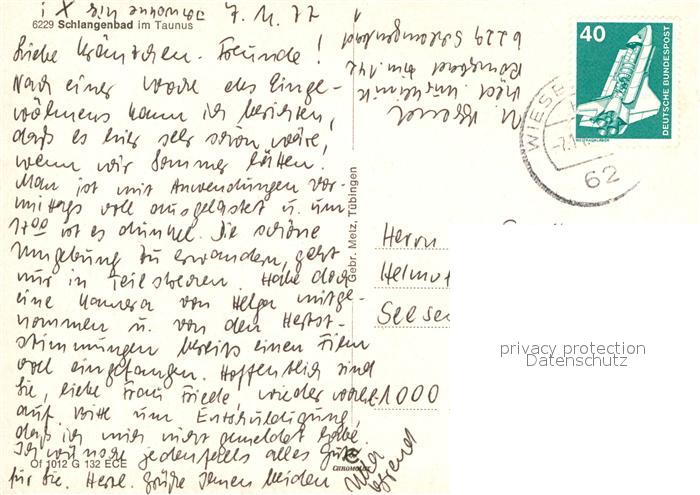 7.11.77
6229 Schlangenbad im Taunus
Liebe Kränzchen-Freunde!
Nach einer Woche des Einge-
wöhnens kann ich berichten,
daß es hier sehr schön wäre,
wenn wir Sommer hätten.
Man ist mit Anwendungen vor-
mittags voll ausgelastet u. um
17⁰⁰ ist es dunkel. Die schöne
Umgebung zu erwandern, geht
nur in Teilstrecken. Habe doch
eine Kamera von Helga mitge-
nommen u. von den Herbst-
stimmungen bereits einen Film
voll eingefangen. Hoffentlich sind
Sie, liebe Frau Friede, wieder wohl-
auf. Bitte um Entschuldigung,
daß ich mich nicht gemeldet habe.
Ich wünsche jedenfalls alles Gute
für Sie. Herzl. Grüße Ihnen beiden
Of 1012 G 132 ECE
CHROMOLUX
Gebr. Metz, Tübingen
6229 Schlangenbad
40
DEUTSCHE BUNDESPOST
WIESB
62
Herrn
Helmut
Seese
1000
privacy protection
Datenschutz